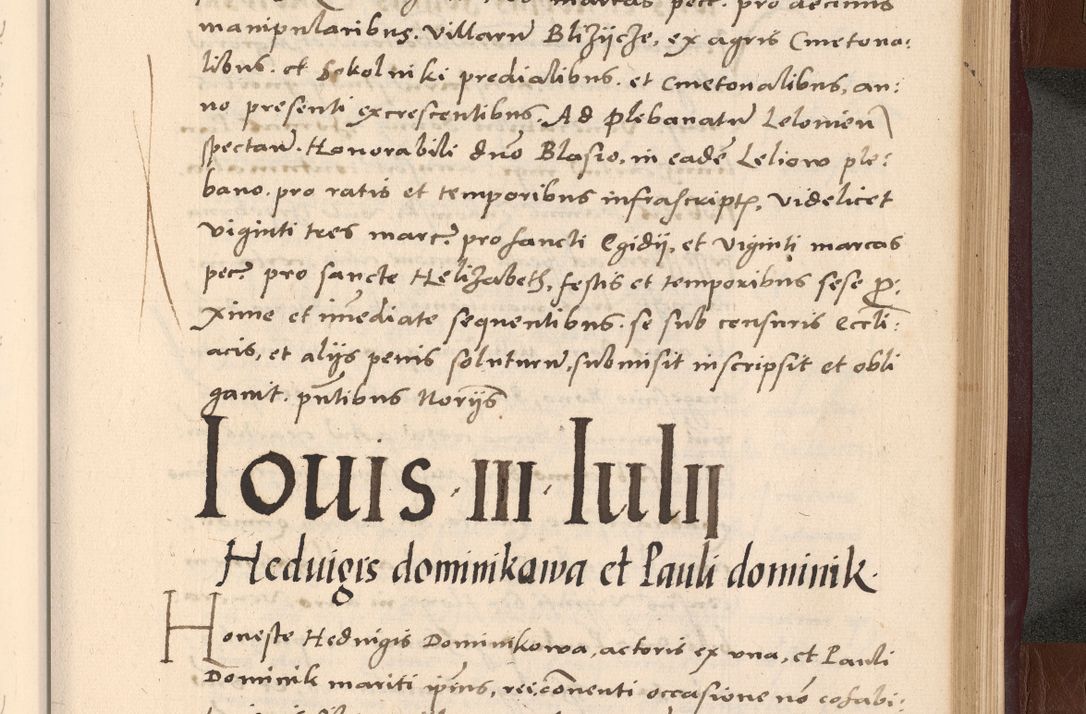 marcas pecc. pro decimis
manipularibus. Villarũ Bliżycże, ex agris Cmetona:
libus. et Sokolniki predialibus. et Cmetonalibus, an:
no presenti excrescentibus. Ad Plebanatũ Lelovien
spectañ. Honorabili dño Blasio, in eadẽ Leliow ple:
bano. pro ratis et temporibus infrascriptꝭ, videlicet
viginti tres marc̃. pro sancti Egidij, et viginti marcas
pecc̃ pro sancte Helizabeth, festis et temporibus sese ꝓ:
xime et iñediate sequentibus. se sub censuris Eccli:
acis, et alijs penis soluturũ, submisit inscripsit et obli
gavit. pñtibus Norijs
Iouis · III · Iulij
Heduigis dominikowa et Pauli dominik.
Honeste Hedvigis Dominikowa, actoris ex una, et Pauli
Dominik mariti ipius, rei conventi occasione nõ cohabi: